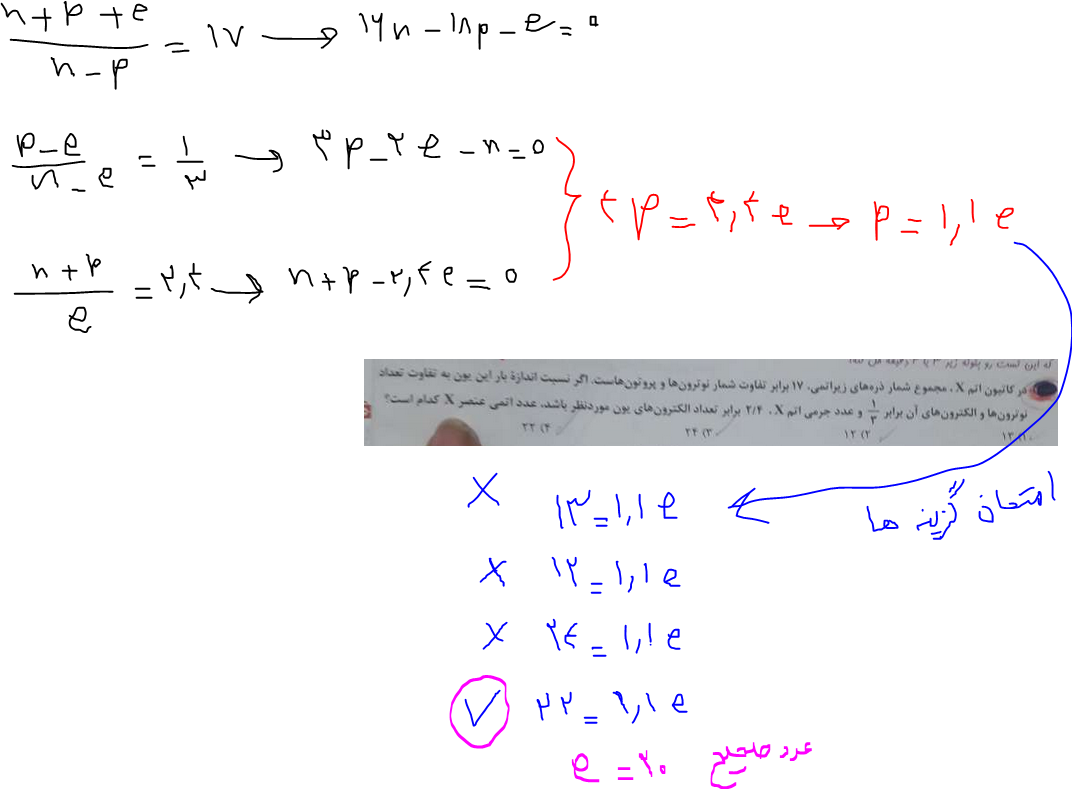 n+p+e / n-p = ۱۷ → ۱۶n - ۱۸p - e = ۰
p-e / n-e = ۱/۳ → ۳p - ۲e - n = ۰
n+p / e = ۲,۴ → n+p - ۲,۴e = ۰
۴p = ۴,۴e → p = ۱,۱e
که این تست رو بتونه زیر ۳ یا ۴ دقیقه حل کنه!
در کاتیون اتم X، مجموع شمار ذره‌های زیراتمی، ۱۷ برابر تفاوت شمار نوترون‌ها و پروتون‌هاست. اگر نسبت اندازهٔ بار این یون به تفاوت تعداد
نوترون‌ها و الکترون‌های آن برابر ۱/۳ و عدد جرمی اتم X، ۲/۴ برابر تعداد الکترون‌های یون موردنظر باشد، عدد اتمی عنصر X کدام است؟
۱) ۱۳ ۲) ۱۲ ۳) ۲۴ ۴) ۲۲
امتحان گزینه ها
۱۳ = ۱,۱e X
۱۲ = ۱,۱e X
۲۴ = ۱,۱e X
۲۲ = ۱,۱e ✓
e = ۲۰ عدد صحیح